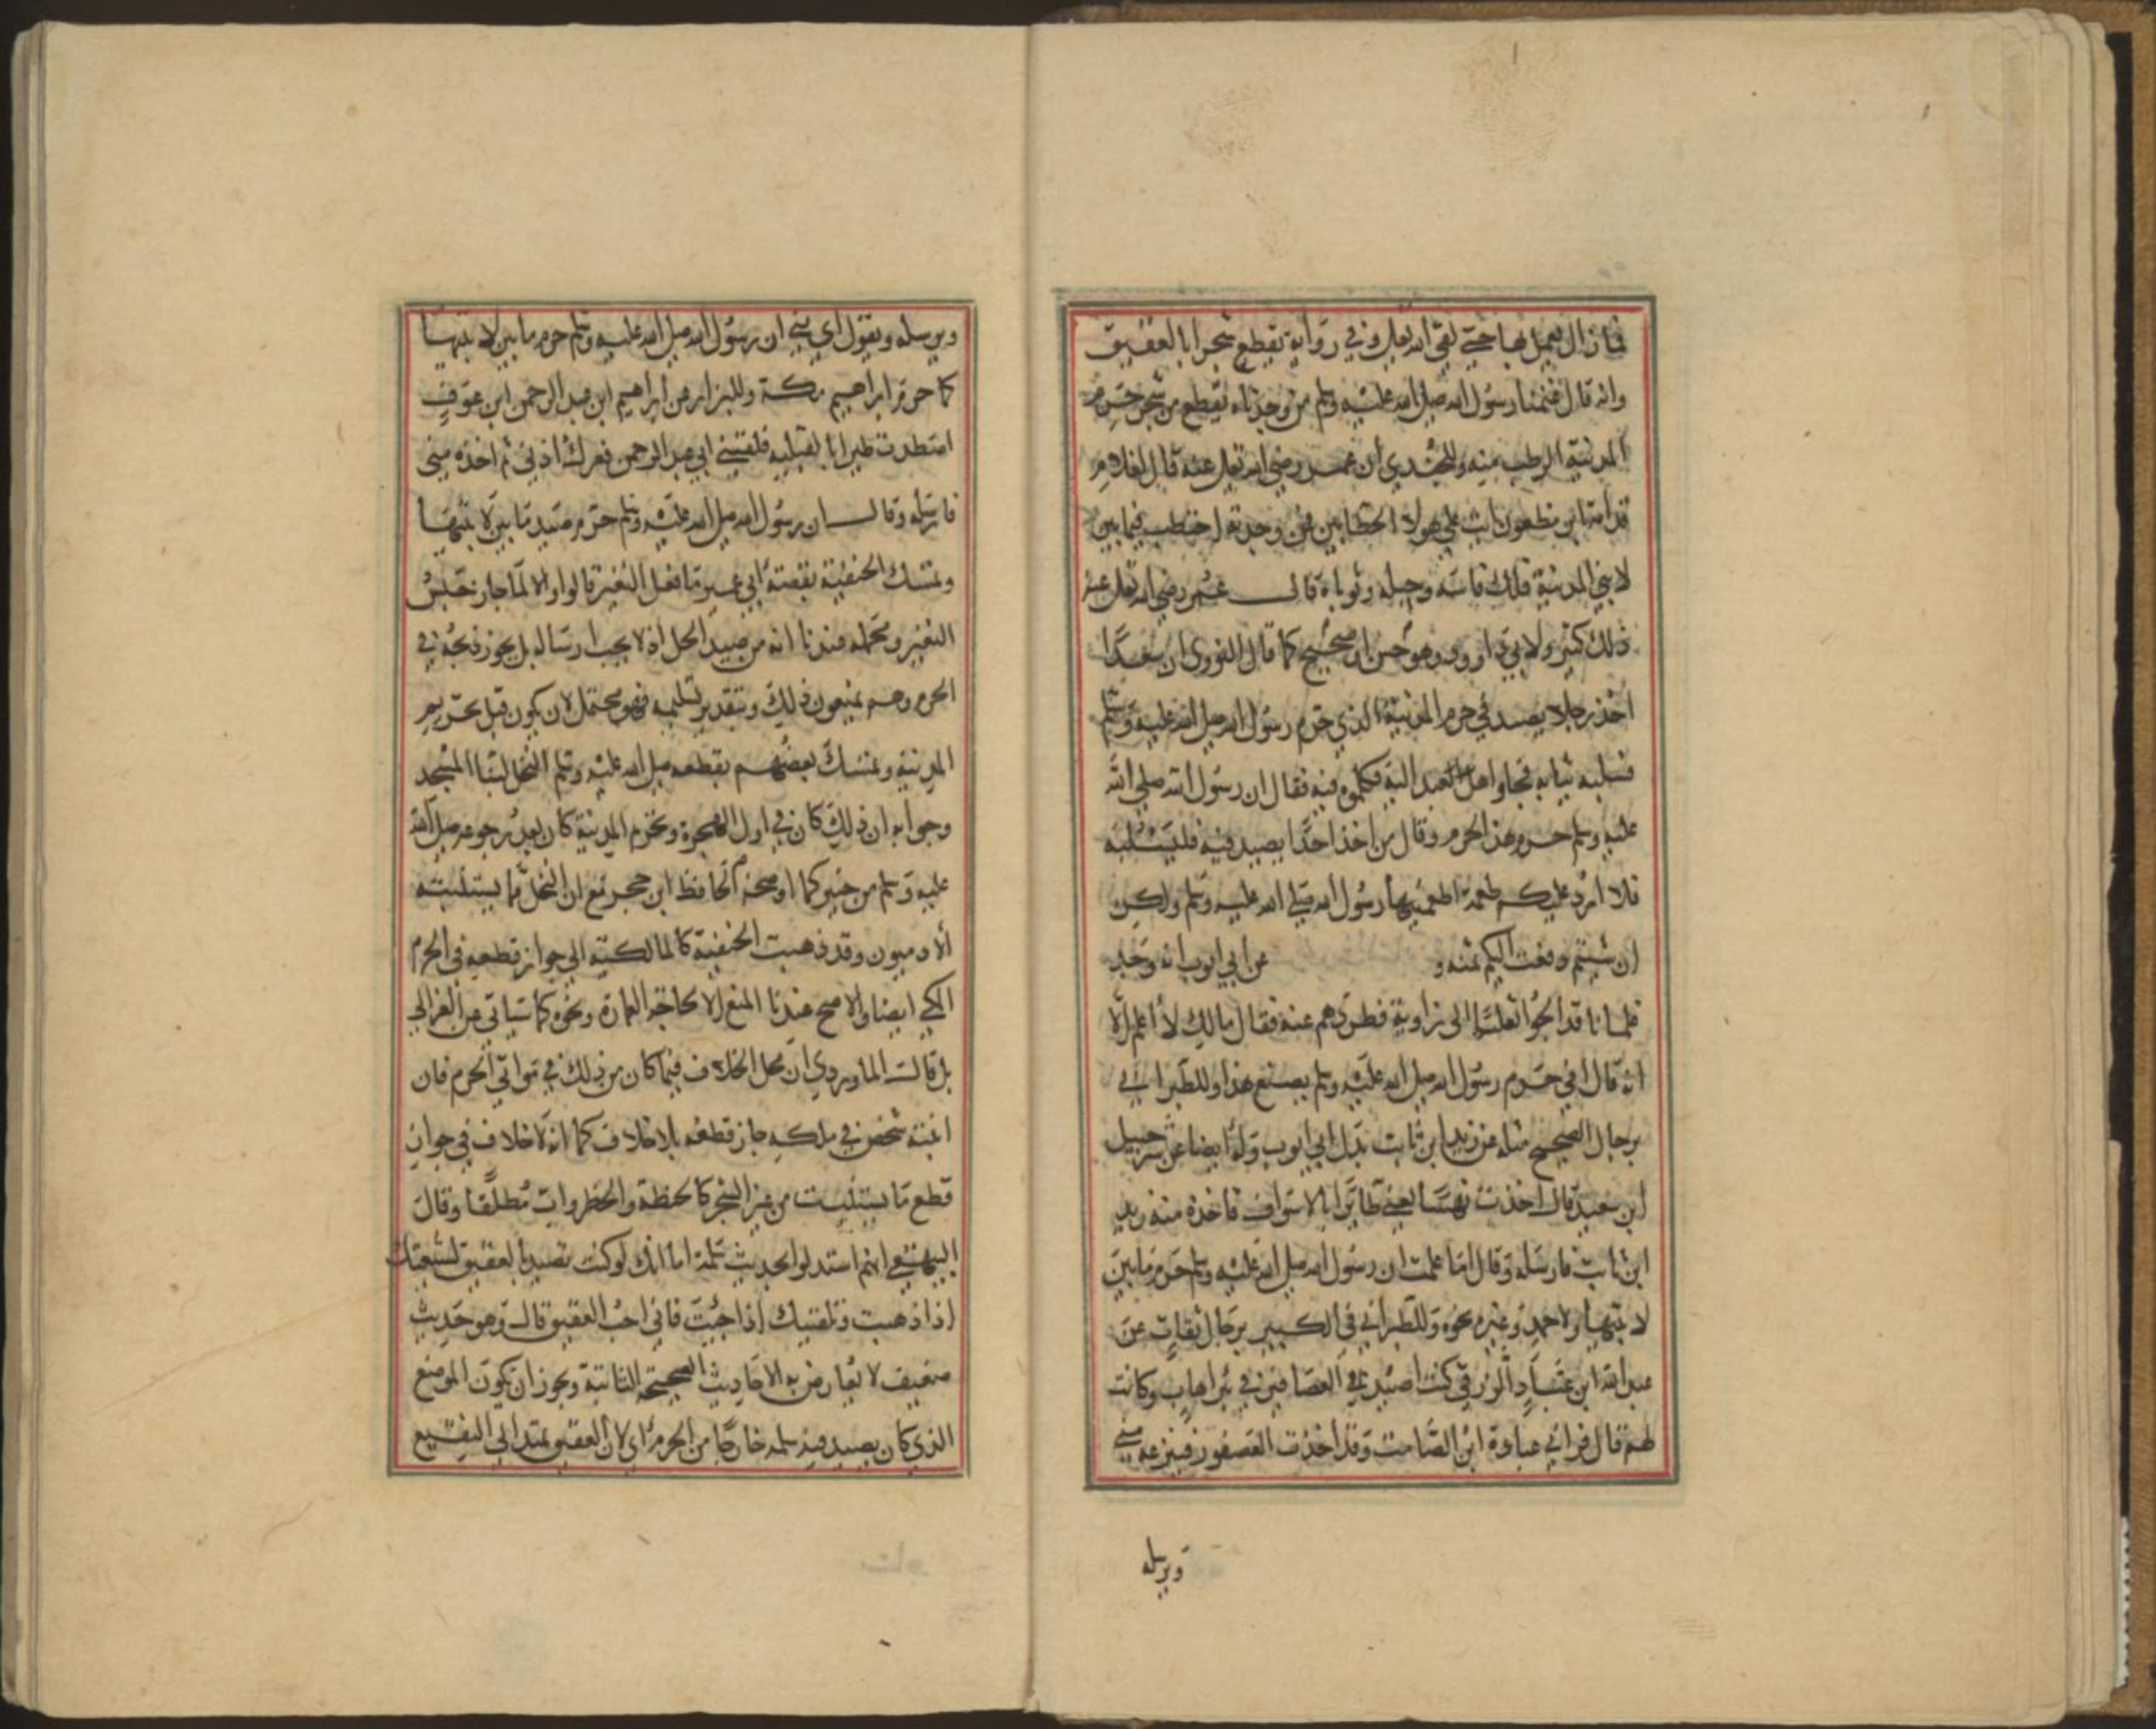 فما زال يعمل بها حتى لقي الله تعالى وفي رواية يقطع شجرا بالعقيق
وانه قال غنمنا رسول الله صلى الله عليه وسلم من وجدناه يقطع من شجر حرم
المدينة الرطب منه وللجندي ان عمر رضي الله تعالى عنه قال لغلام
قدامة ابن مظعون انت على هولاء الحطابين فمن وجدته احتطب فيما بين
لابتي المدينة فلك فاسه وحبله وثوباه قال عمر رضي الله تعالى عنه
ذلك كثير ولابي داوود وهو حسن او صحيح كما قال النووي ان سعدا
اخذ رجلا يصيد في حرم المدينة الذي حرم رسول الله صلى الله عليه وسلم
فسلبه ثيابه فجاوا اهل العبد اليه فكلموه فيه فقال ان رسول الله صلى الله
عليه وسلم حرم هذا الحرم وقال من اخذ احدا يصيد فيه فليسلبه
فلا ارد عليكم طعمة اطعمنيها رسول الله صلى الله عليه وسلم ولكن
ان شيتم دفعت اليكم ثمنه و عن ابي ايوب انه وجد
غلمانا قد الجوا ثعلبا الى زاوية فطردهم عنه فقال مالك لا اعلم الا
انه قال افي حرم رسول الله صلى الله عليه وسلم يصنع هذا وللطبراني
برجال الصحيح مثله عن زيد ابن ثابت بدل ابي ايوب وله ايضا عن شرحبيل
ابن سعيد قال اخذت نهسا يعني طائرا بالاسواف فاخذه منه زيد
ابن ثابت فارسله وقال اما علمت ان رسول الله صلى الله عليه وسلم حرم ما بين
لابتيها ولاحمد وغيره نحوه وللطبراني في الكبير برجال ثقات عن
عبد الله ابن عباد الزرقي كنت اصيد العصافير في بئر اهاب وكانت
لهم قال فراني عبادة ابن الصامت وقد اخذت العصفور فينزعه مني
ويرسله
ويرسله ويقول اي بني ان رسول الله صلى الله عليه وسلم حرم ما بين لابتيها
كما حرم ابراهيم مكة وللبزار عن ابراهيم ابن عبد الرحمن ابن عوف
اصطدت طيرا بالقبلية فلقيني ابي عبد الرحمن فعرك اذني ثم اخذه مني
فارسله وقال ان رسول الله صلى الله عليه وسلم حرم صيد ما بين لابتيها
وتمسك الحنفية بقصة ابي عمير ما فعل النغير قالوا والا لما جاز حبس
النغير ومحمله عندنا انه من صيد الحل اذ لا يجب ارساله بل يجوز ذبحه في
الحرم وهم يمنعون ذلك وبتقدير تسليمه فهو محتمل لان يكون قبل تحريم
المدينة وتمسك بعضهم بقطعه صلى الله عليه وسلم النخل لبنا المسجد
وجوابه ان ذلك كان في اول الهجرة وتحريم المدينة كان بعد رجوعه صلى الله
عليه وسلم من خيبر كما اوضحه الحافظ ابن حجر مع ان النخل مما يستنبته
الادميون وقد ذهبت الحنفية كالمالكية الى جواز قطعه في الحرم
المكي ايضا والاصح عندنا المنع الا لحاجة العمارة ونحوه كما سياتي عن الغزالي
بل قال الماوردي ان محل الخلاف فيما كان من ذلك في موات الحرم فان
انبته شخص في ملكه جاز قطعه بلا خلاف كما انه لا خلاف في جواز
قطع ما يستنبت من غير الشجر كالحنطة والخضروات مطلقا وقال
البيهقي انهم استدلوا بحديث سلمة اما انك لو كنت تصيد بالعقيق لشيعتك
اذا ذهبت وتلقيتك اذا جيت فاني احب العقيق قال وهو حديث
ضعيف لا يعارض به الاحاديث الصحيحة الثابتة ويجوز ان يكون الموضع
الذي كان يصيد فيه سلمة خارجا من الحرم اي لان العقيق يمتد الى النقيع